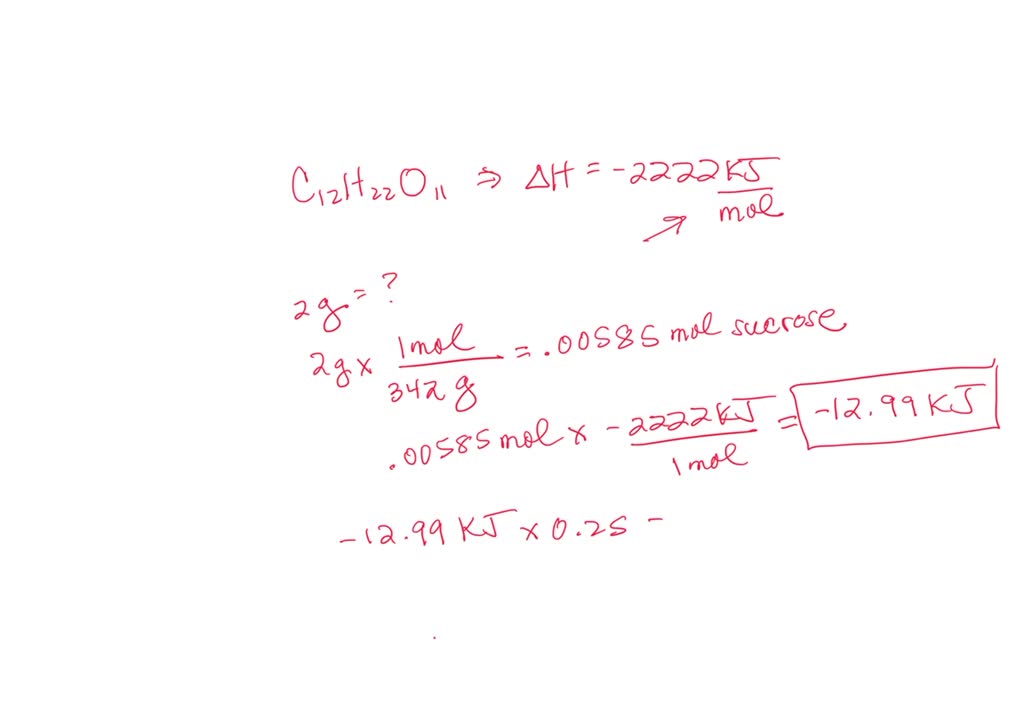 C₁₂H₂₂O₁₁ ⇒ ΔH = -2222 KJ/mol
2g = ?
2g x 1mol/342g = .00585 mol sucrose
.00585 mol x -2222 KJ/1mol = -12.99 KJ
-12.99 KJ x 0.25 -